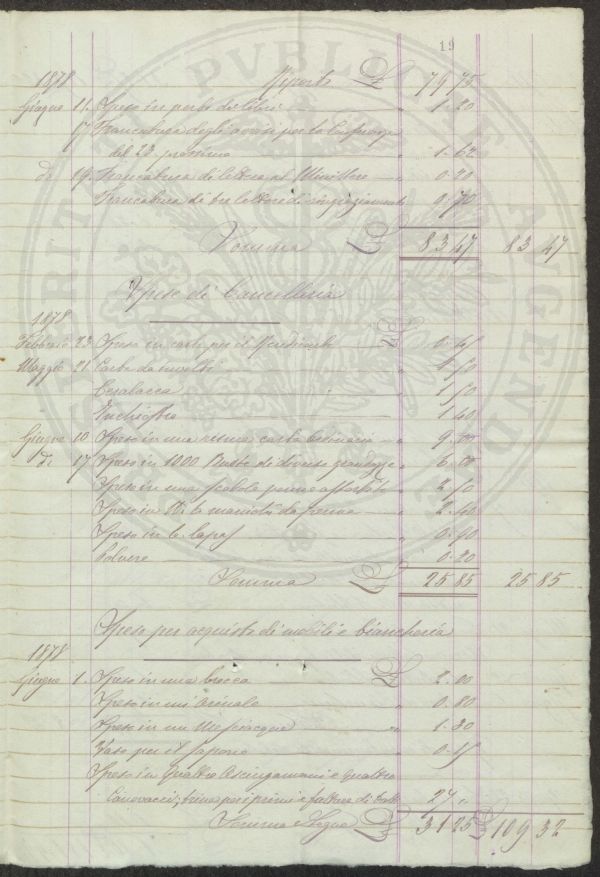 19
1878 Riporto L. 79 75
Giugno 11. Speso in porto di libri " 1. 20
17 Francatura degli avvisi per la
del 23. prossimo " 1. 62
d.° 19. Francatura di lettera al Ministero " 0. 20
Francatura di tre lettere di ringraziamento " 0. 70
Somma L. 83 47 83 47
Spese di Cancelleria
1878
Febbraio 23 Speso in carta per il L.
Maggio 21 Carta da " 1. 50
Ceralacca " 1. 50
Inchiostro " 1. 60
Giugno 10 Speso in una risma carta " 9. 00
d.° 17 Speso in 1000 Buste di diversa grandezza " 6. 00
Speso in una scatola penne assortite " 2. 50
Speso in N. 6 da penna " 2. 40
Speso in 6. lapis "
Polvere " 0. 20
Somma L. 25 85 25 85
Spese per acquisto di mobili e biancheria
1878
Giugno 1. Speso in una brocca L. 2. 00
Speso in un " 0. 80
Speso in un Mesciacqua " 1. 30
Vaso per il Sapone " 0. 15
Speso in quattro Asciugamani e quattro
Canovacci; per i primi e fattura di tutto 27 "
Somma e Segue L. 31 25 L. 109 32